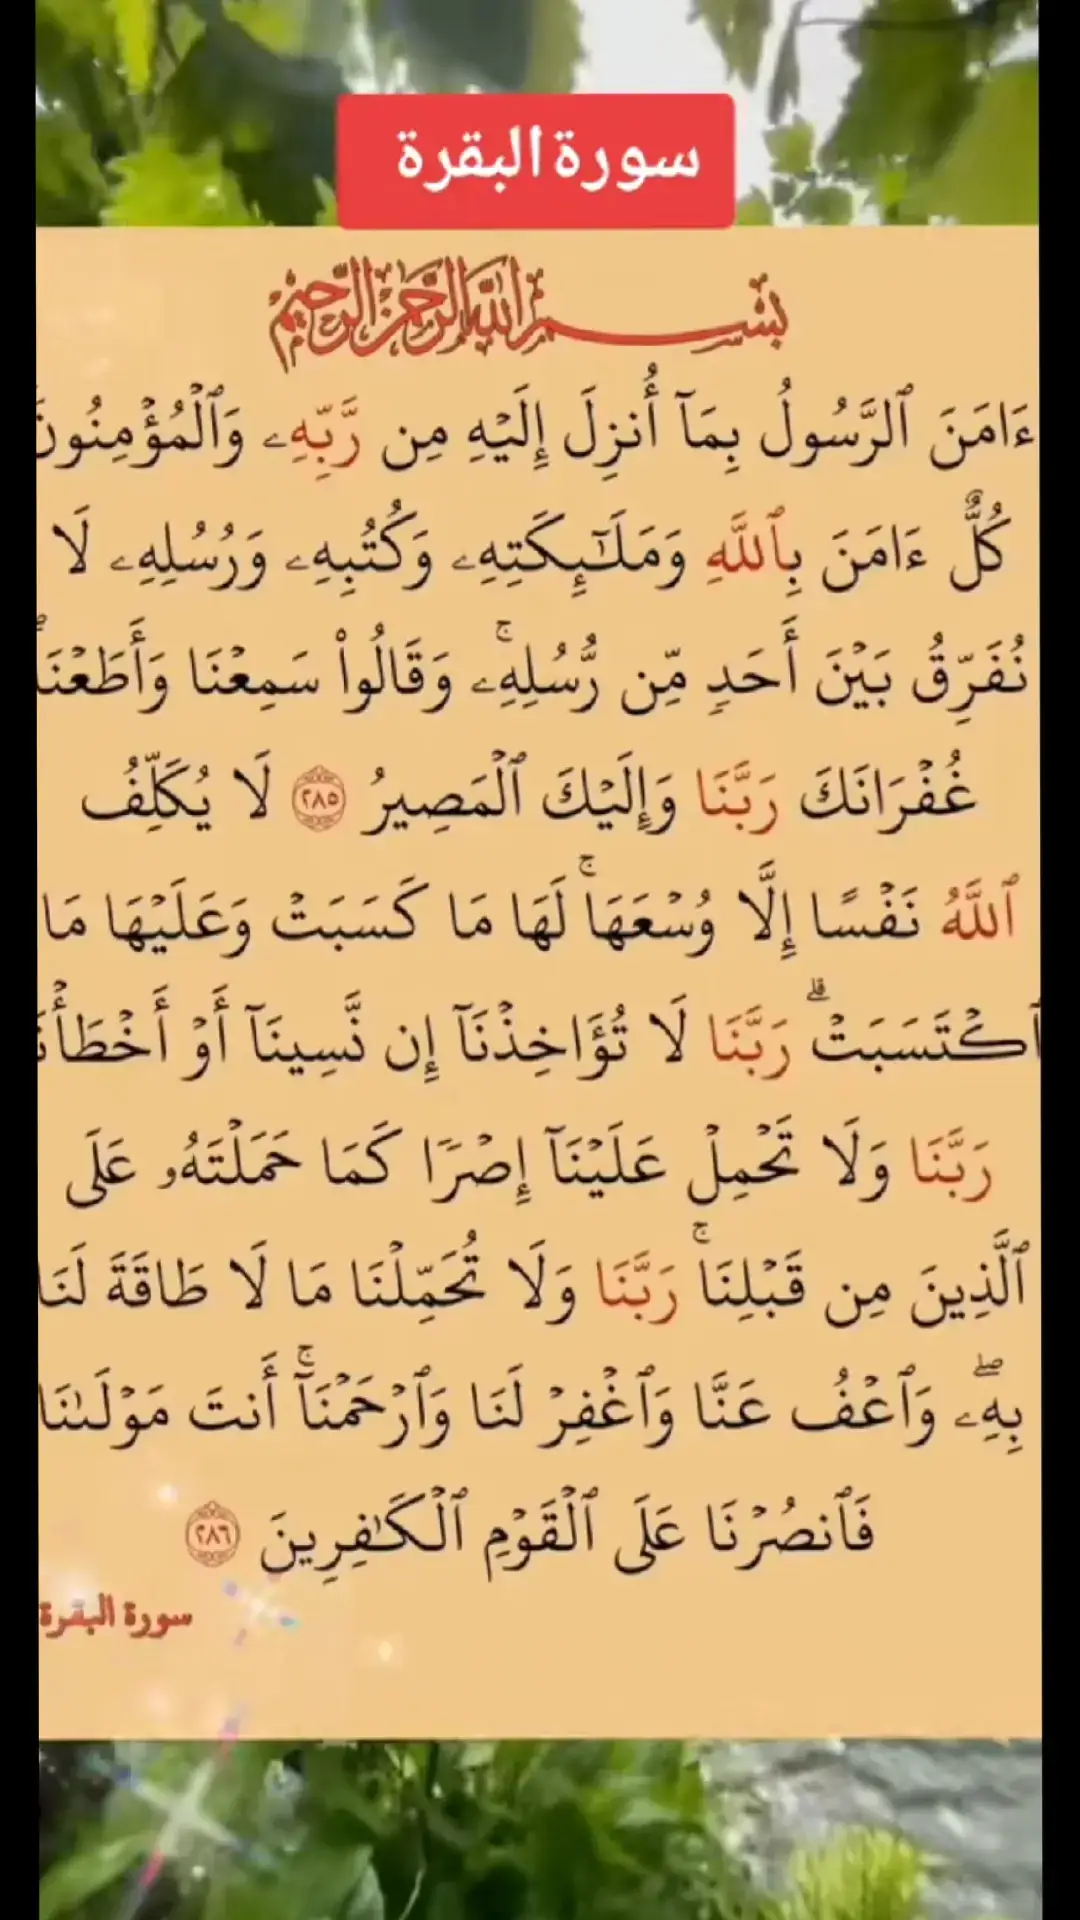 سورة البقرة
بِسْمِ اللَّهِ الرَّحْمَٰنِ الرَّحِيمِ
ءَامَنَ ٱلرَّسُولُ بِمَآ أُنزِلَ إِلَيْهِ مِن رَّبِّهِۦ وَٱلْمُؤْمِنُونَ
كُلٌّ ءَامَنَ بِٱللَّهِ وَمَلَـٰٓئِكَتِهِۦ وَكُتُبِهِۦ وَرُسُلِهِۦ لَا
نُفَرِّقُ بَيْنَ أَحَدٍ مِّن رُّسُلِهِۦۚ وَقَالُوا۟ سَمِعْنَا وَأَطَعْنَاۖ
غُفْرَانَكَ رَبَّنَا وَإِلَيْكَ ٱلْمَصِيرُ ٢٨٥ لَا يُكَلِّفُ
ٱللَّهُ نَفْسًا إِلَّا وُسْعَهَاۚ لَهَا مَا كَسَبَتْ وَعَلَيْهَا مَا
ٱكْتَسَبَتْۗ رَبَّنَا لَا تُؤَاخِذْنَآ إِن نَّسِينَآ أَوْ أَخْطَأْنَا
رَبَّنَا وَلَا تَحْمِلْ عَلَيْنَآ إِصْرًا كَمَا حَمَلْتَهُۥ عَلَى
ٱلَّذِينَ مِن قَبْلِنَاۚ رَبَّنَا وَلَا تُحَمِّلْنَا مَا لَا طَاقَةَ لَنَا
بِهِۦۖ وَٱعْفُ عَنَّا وَٱغْفِرْ لَنَا وَٱرْحَمْنَآۚ أَنتَ مَوْلَىٰنَا
فَٱنصُرْنَا عَلَى ٱلْقَوْمِ ٱلْكَـٰفِرِينَ ٢٨٦
سورة البقرة